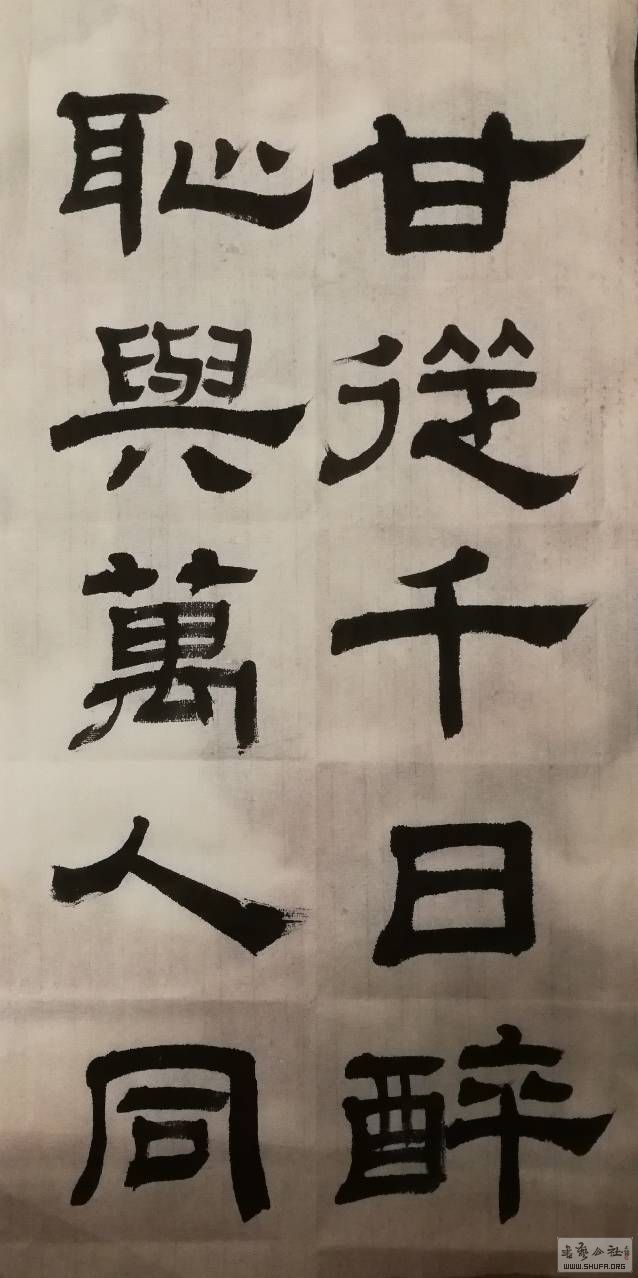 甘從千日醉
恥與萬人同
WWW.SHUFA.ORG